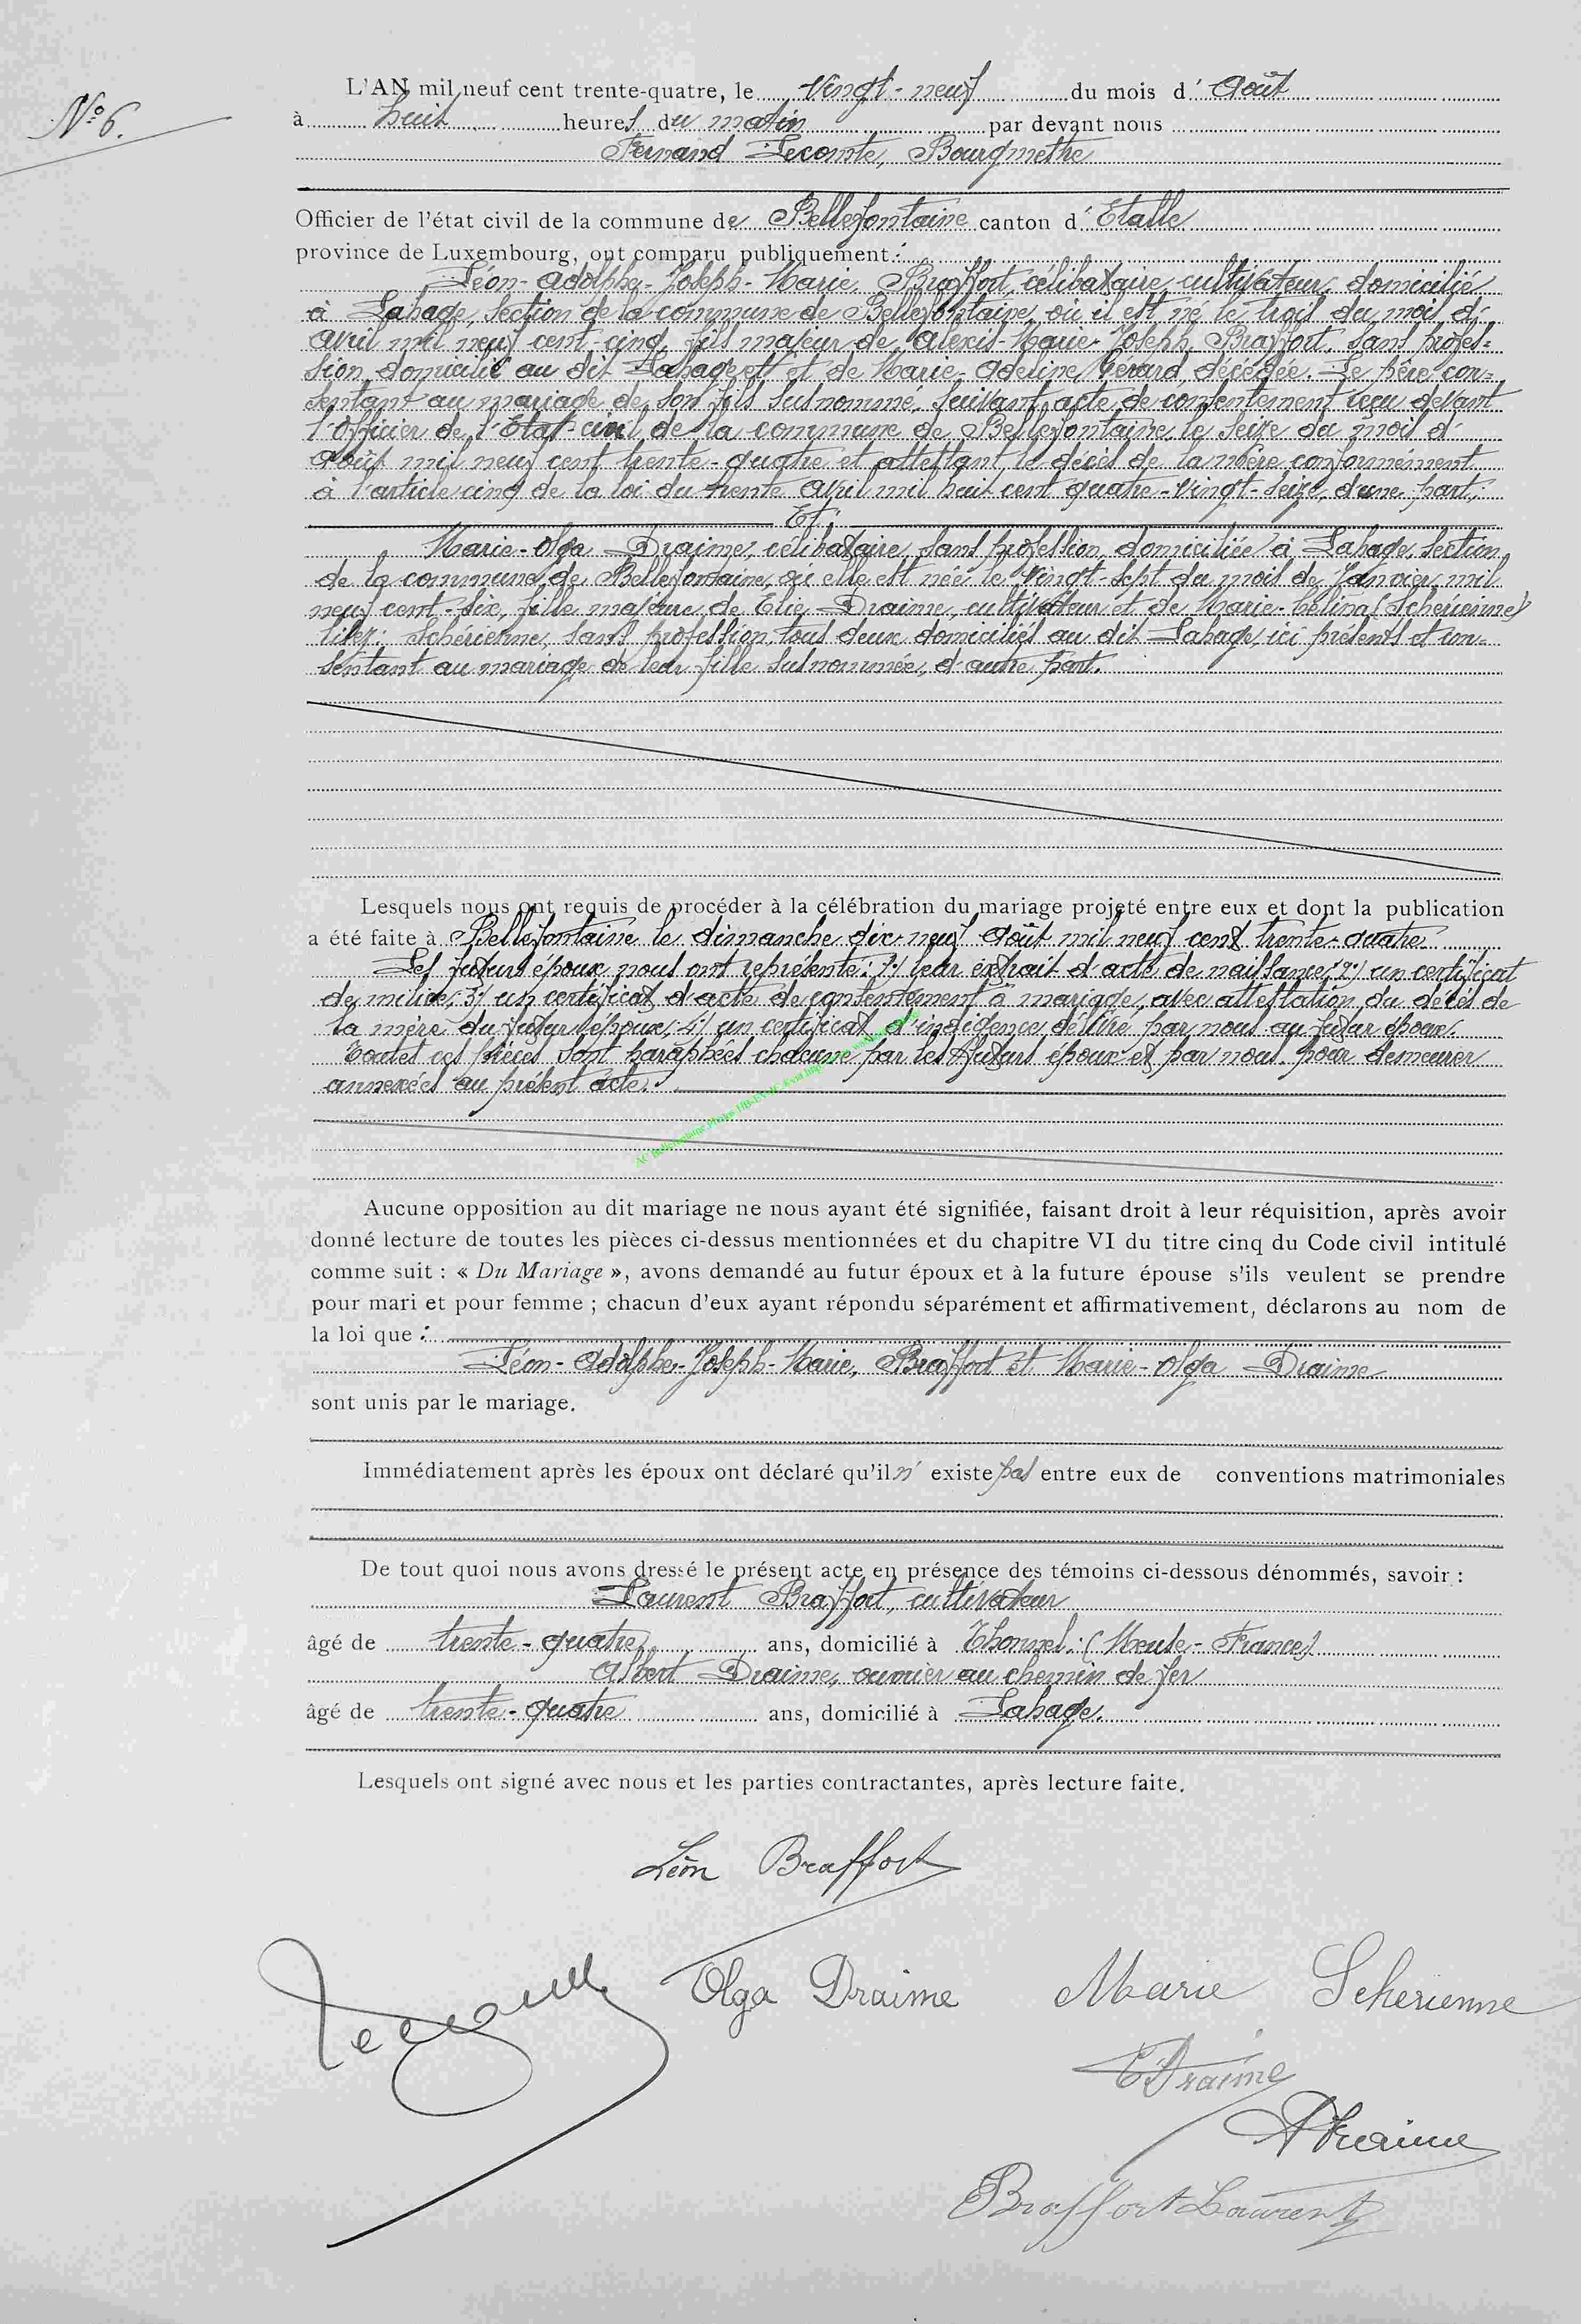 N° 6.
L'AN mil neuf cent trente-quatre, le vingt-neuf du mois d'Août
à huit heures du matin par devant nous
Fernand Lecomte, Bourgmestre
Officier de l'état civil de la commune de Bellefontaine canton d'Etalle
province de Luxembourg, ont comparu publiquement :
Léon-Adolphe-Joseph-Marie Braffort, célibataire, cultivateur, domicilié
à Lahage, section de la commune de Bellefontaine, où il est né le trois du mois d'
avril mil neuf cent-cinq, fils majeur de Alexis-Marie-Joseph Braffort, sans profes-
sion, domicilié au dit Lahage et de Marie-Adeline Gérard, décédée. Le père con-
sentant au mariage de son fils susnommé, suivant acte de consentement reçu devant
l'Officier de l'Etat civil de la commune de Bellefontaine, le seize du mois d'
août mil neuf cent trente-quatre et attestant le décès de la mère conformément
à l'article cinq de la loi du trente avril mil huit cent quatre-vingt-seize, d'une part,
Et :
Marie-Olga Draime, célibataire, sans profession, domiciliée à Lahage, section
de la commune de Bellefontaine, où elle est née le vingt-sept du mois de Janvier mil
neuf cent-six, fille majeure de Elie Draime, cultivateur et de Marie-Célina (Scheriennne)
lisez : Schérienne, sans profession, tous deux domiciliés au dit Lahage, ici présents et con-
sentant au mariage de leur fille susnommée, d'autre part.
Lesquels nous ont requis de procéder à la célébration du mariage projeté entre eux et dont la publication
a été faite à Bellefontaine le dimanche dix-neuf Août mil neuf cent trente-quatre
Les futurs époux nous ont représenté : 1°/ leur extrait d'acte de naissance, 2°/ un certificat
de milice, 3°/ un certificat d'acte de consentement à mariage, avec attestation du décès de
la mère du futur époux, 4°/ un certificat d'indigence délivré par nous au futur époux.
Toutes ces pièces sont paraphées chacune par les futurs époux et par nous pour demeurer
annexées au présent acte.
Aucune opposition au dit mariage ne nous ayant été signifiée, faisant droit à leur réquisition, après avoir
donné lecture de toutes les pièces ci-dessus mentionnées et du chapitre VI du titre cinq du Code civil intitulé
comme suit : « Du Mariage », avons demandé au futur époux et à la future épouse s'ils veulent se prendre
pour mari et pour femme ; chacun d'eux ayant répondu séparément et affirmativement, déclarons au nom de
la loi que :
Léon-Adolphe-Joseph-Marie, Braffort et Marie-Olga Draime
sont unis par le mariage.
Immédiatement après les époux ont déclaré qu'il n'existe pas entre eux de conventions matrimoniales
De tout quoi nous avons dressé le présent acte en présence des témoins ci-dessous dénommés, savoir :
Laurent Braffort, cultivateur
âgé de trente-quatre ans, domicilié à Thonnel. (Meuse-France)
Albert Draime, ouvrier au chemin de fer
âgé de trente-quatre ans, domicilié à Lahage.
Lesquels ont signé avec nous et les parties contractantes, après lecture faite.
Léon Braffort
Lecomte
Olga Draime Marie Scherienne
E Draime
A Draime
Braffort Laurent